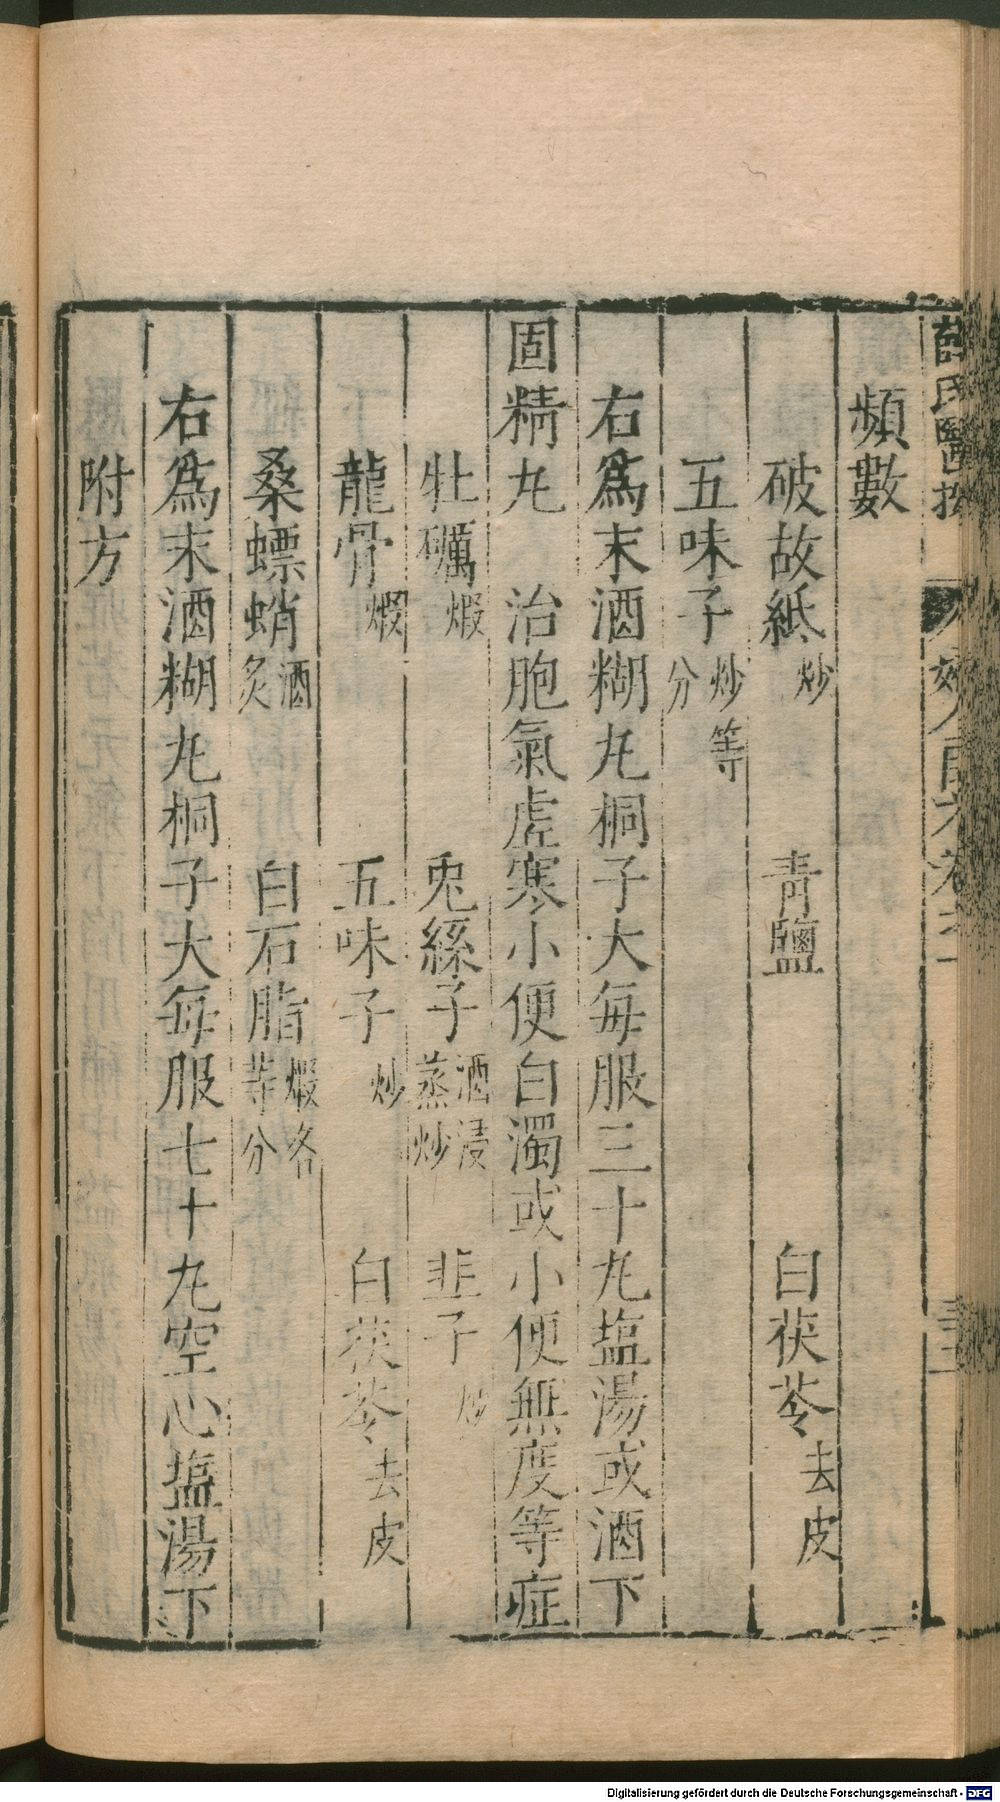 薛氏醫按
頻數
破故紙炒 青鹽 白茯苓去皮
五味子炒等分
右爲末酒糊丸桐子大每服三十丸塩湯或酒下
固精丸 治胞氣虛寒小便白濁或小便無度等症
牡礪煆 兎絲子酒浸蒸炒 韭子炒
龍骨煆 五味子炒 白茯苓去皮
桑螵蛸酒炙 白石脂煆各等分
右爲末酒糊丸桐子大每服七十丸空心塩湯下
附方
Digitalisierung gefördert durch die Deutsche Forschungsgemeinschaft - DFG